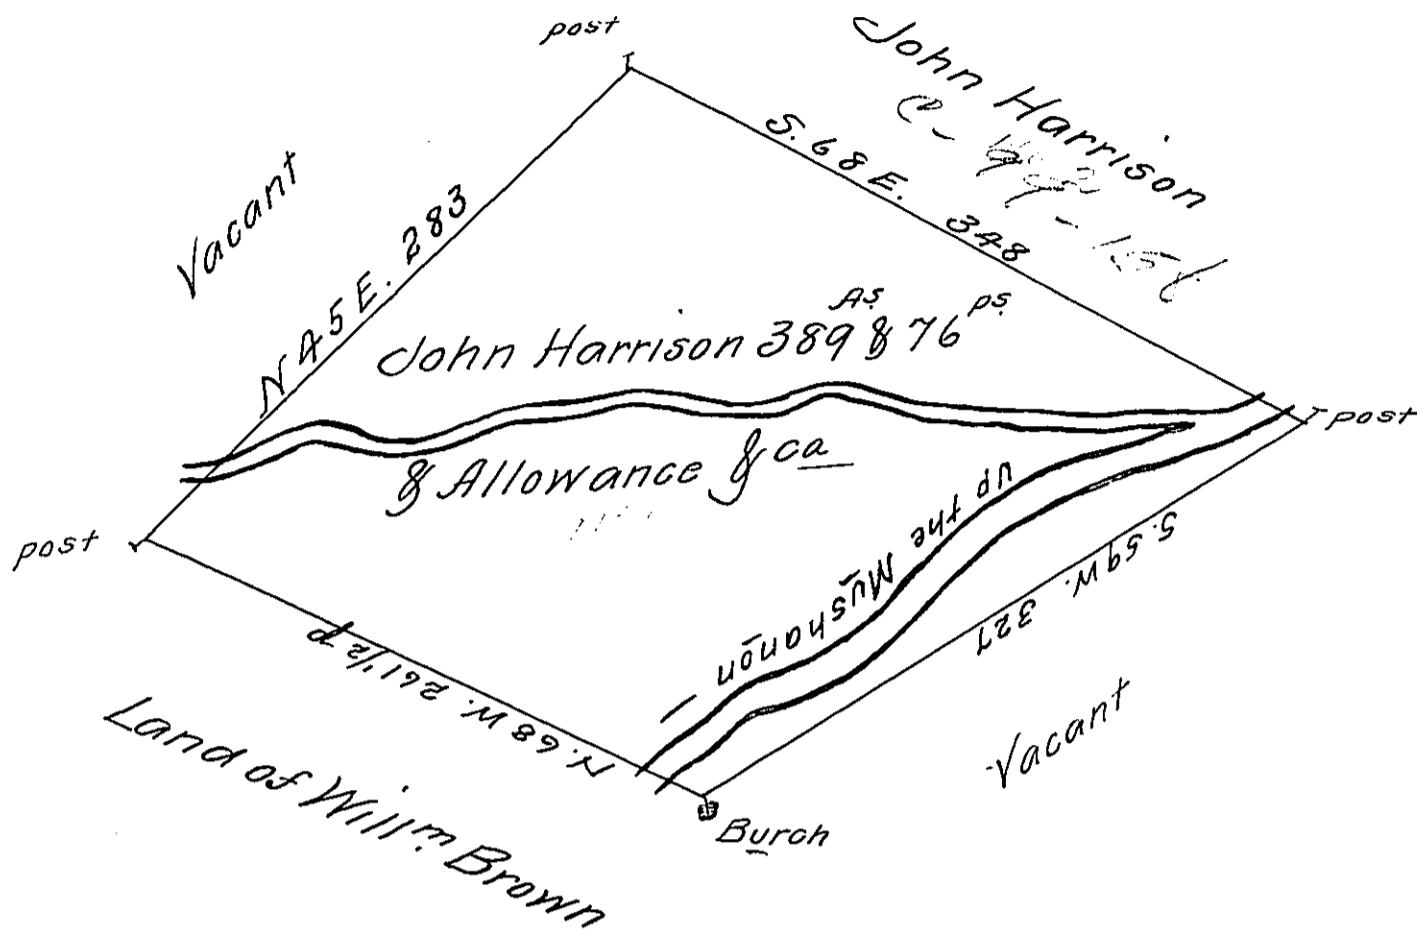 post
John Harrison
Vacant
S. 68 E. 348
N 45 E. 283
John Harrison 389 As & 76 ps
& Allowance & ca
post
up the Mushanon
post
S. 59 W. 327
N. 68 W. 261 1/2 p
Vacant
Land of Willm. Brown
Burch